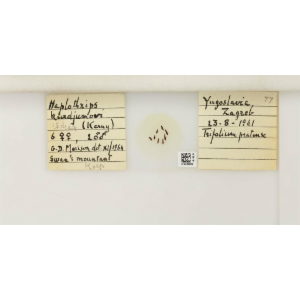 Haplothrips
(Karny)
6 ♀♀, 2♂♂
G.D. Morison det. XI/1964
Swan's mountant
Yugoslavia 79
Zagreb
23-8-1961
Trifolium pratense